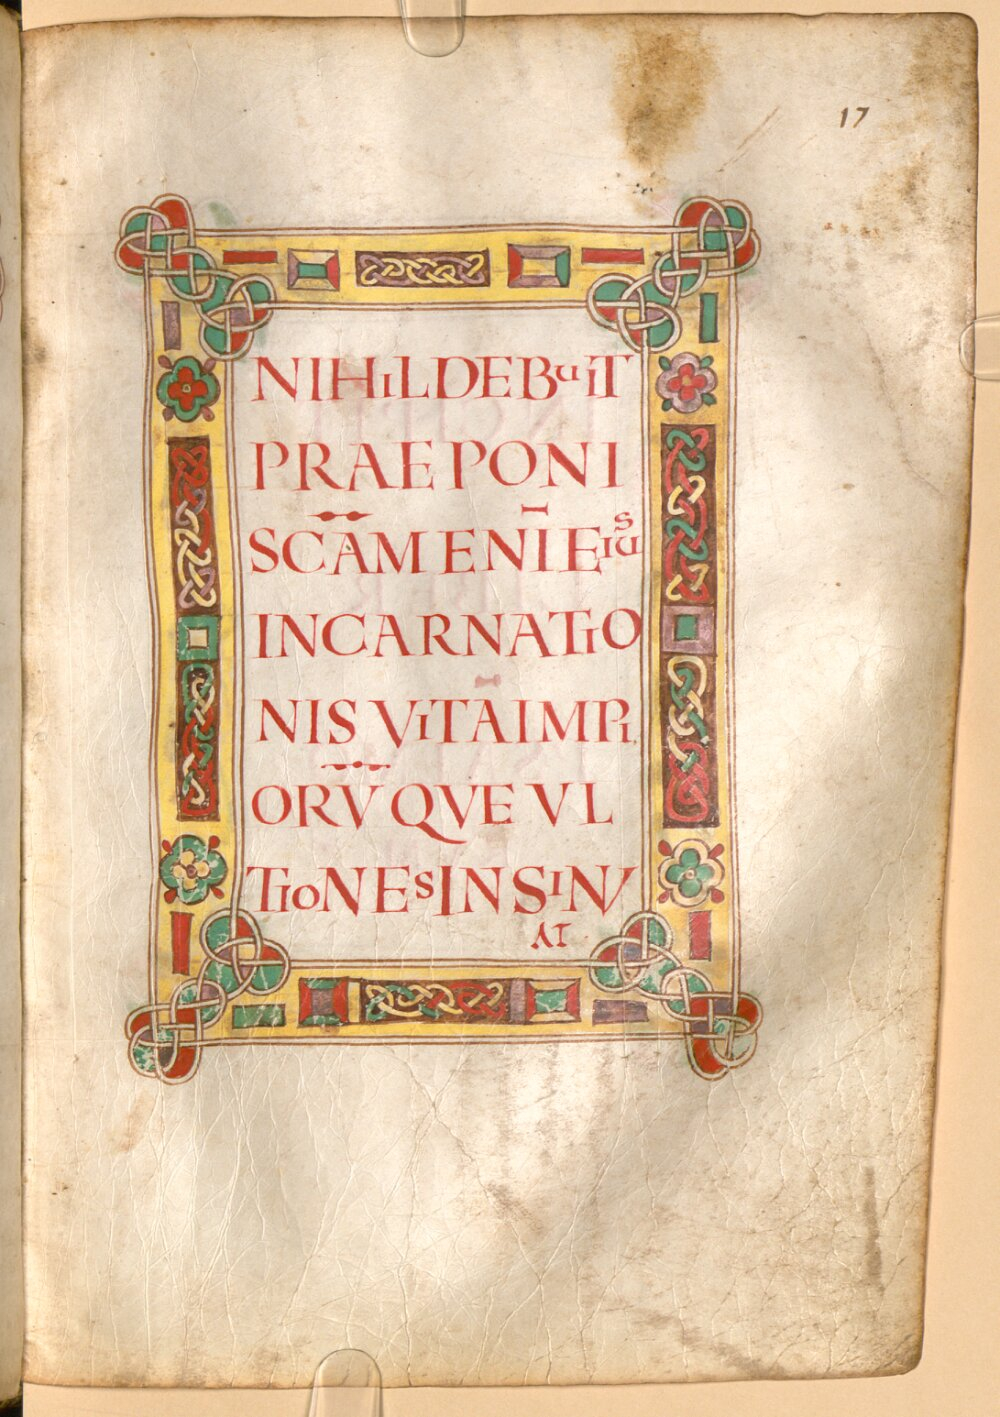 17
NIHILDEBUIT
PRAEPONI
SCĀMENĪEIUS
INCARNATIO
NIS VITAIMPI
ORV̄ QVE VL
TIONESINSINV
AT